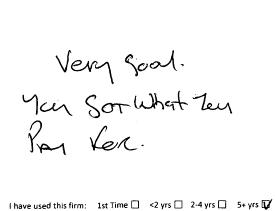 Very Good.
You Got What You
Pay For.
I have used this firm: 1st Time ☐ <2 yrs ☐ 2-4 yrs ☐ 5+ yrs ☑